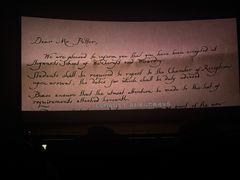 Dear Mr. Potter,
We are pleased to inform you that you have been accepted at
Hogwarts School of Witchcraft and Wizardry
Students shall be required to report to the Chamber of Reception
upon arrival, the dates for which shall be duly advised
Please ensure that the utmost attention be made to the list of
requirements attached herewith.
of the new